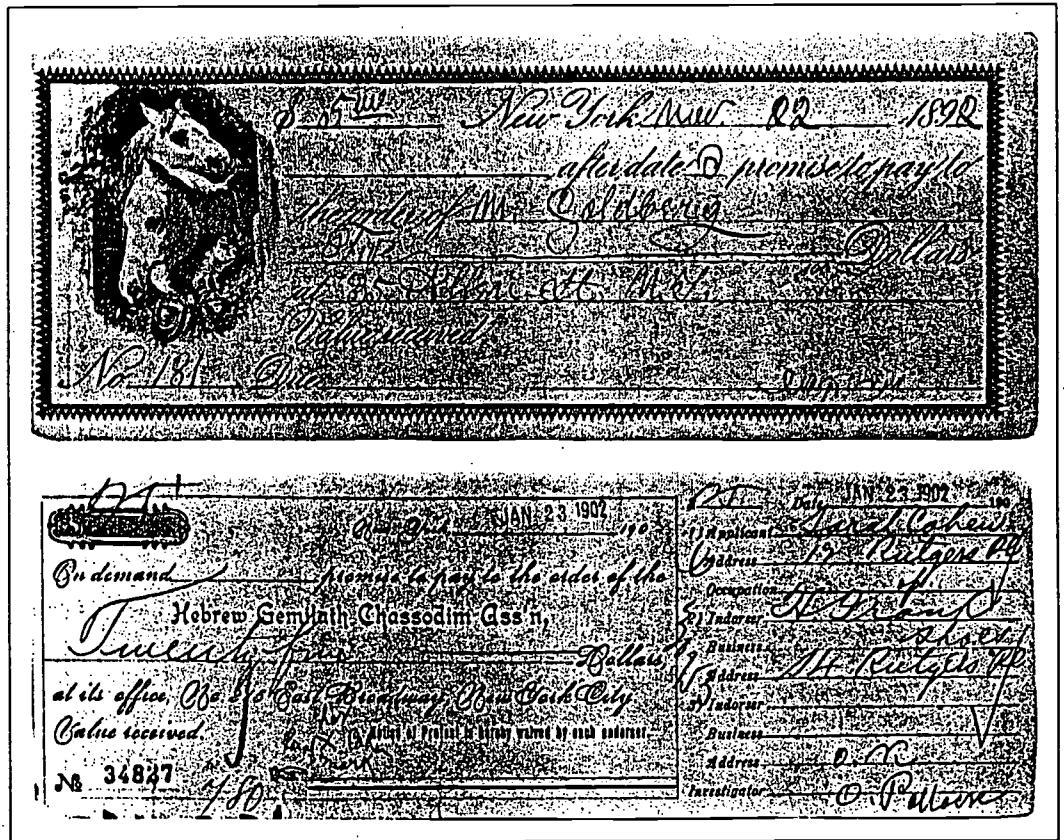 $ 5 00 New York, Nov 22 1892
after date I promise to pay to
the order of M. Goldberg
Five Dollars
at
Value received
No. 181 Due
25
JAN 23 1902
New York 190
On demand promise to pay to the order of the
Hebrew Gemilath Chassodim Ass'n,
Twenty five Dollars
at its office, No East Broadway, New York City
Value received.
Notice of Protest is hereby waived by each endorser.
mark
No 34827
Date JAN 23 1902 190
1) Applicant Sarah Cohen
Address 12 Rutgers Pl
Occupation
2) Indorser H. Frank
Business Shoes
Address 14 Rutgers Pl
3) Indorser
Business
Address O.K.
Investigator